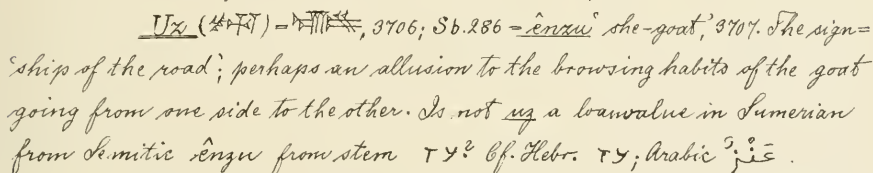 Uz () = , 3706; Sb. 286 = ênzu ‘she-goat,’ 3707. The sign =
‘ship of the road’; perhaps an allusion to the browsing habits of the goat
going from one side to the other. Is not uz a loanvalue in Sumerian
from Semitic ênzu from stem עז? Cf. Hebr. עז; Arabic عَنْزٌ.